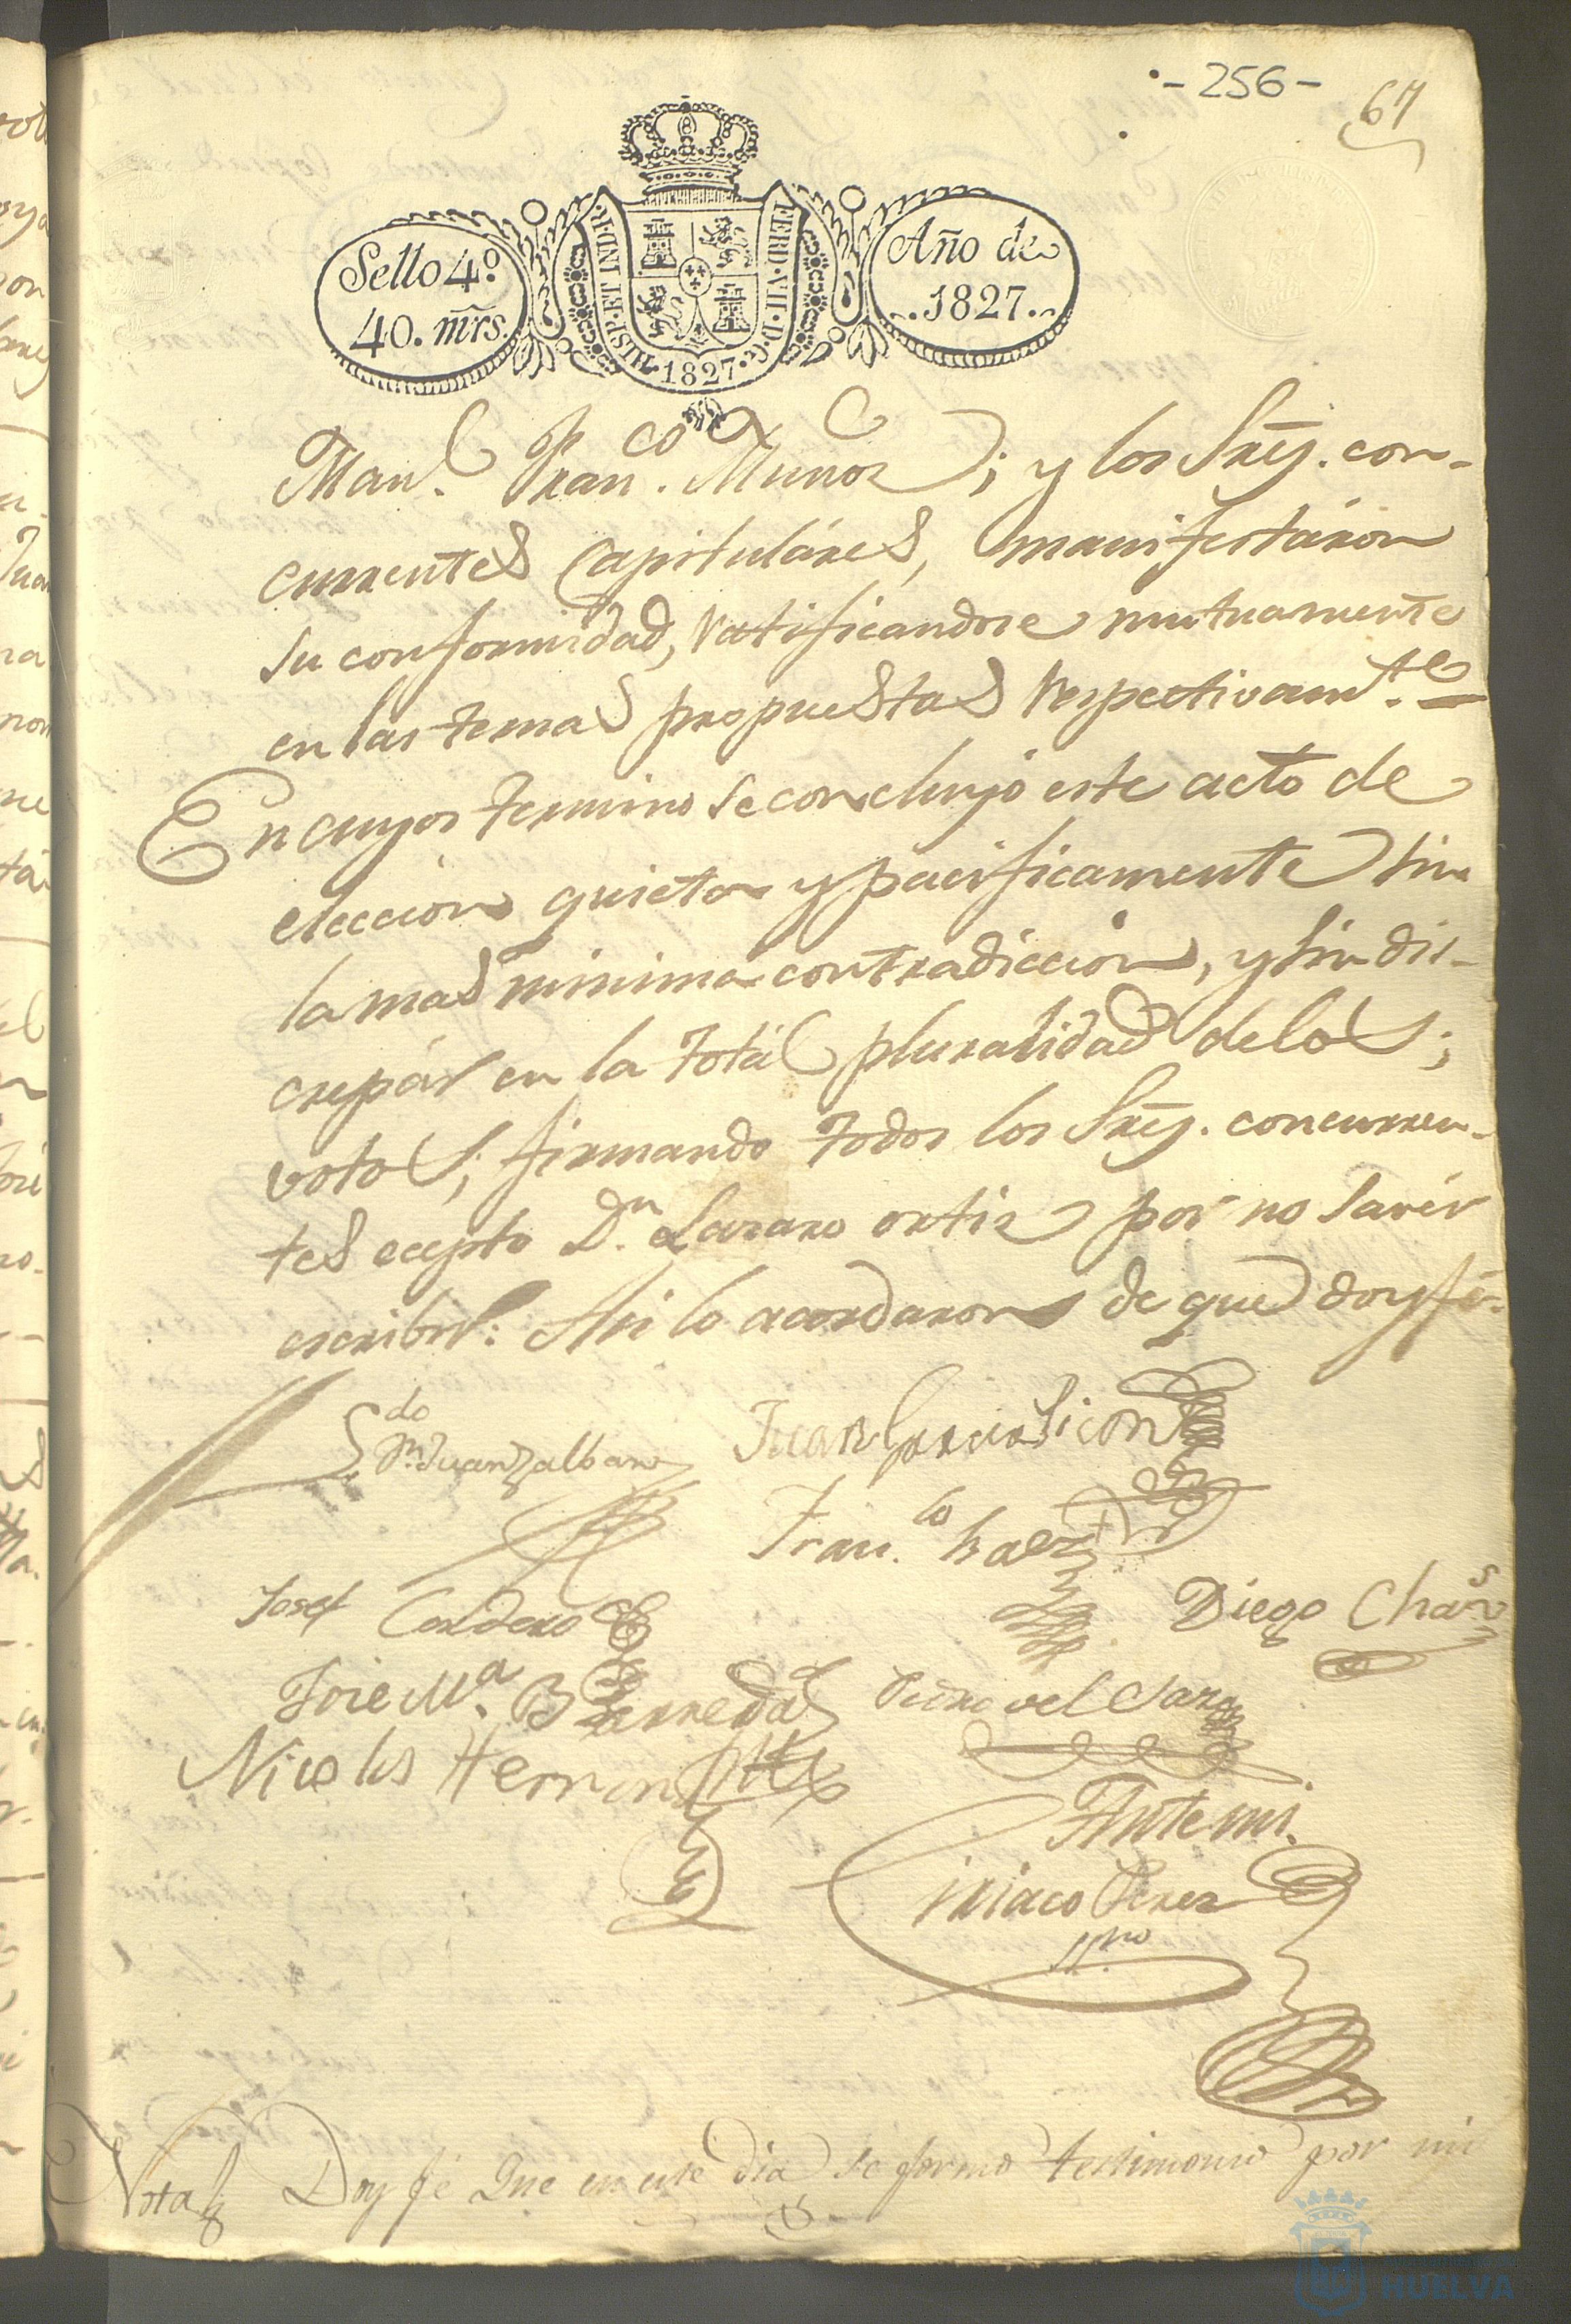 - 256 -
67
Sello 4º.
40. mrs.
HISP. ET IND. R.
FERD. VII. D. G.
1827
Año de
1827.
Man.l Fran.co Muñoz; y los Sres. con-
currentes Capituláres, manifestáron
su conformidad, ratificandose mutuamente
en las ternas propuestas respectivam.te
En cuyos termino se concluyó este acto de
eleccion quieta y pacificamente sin
la mas minima contradiccion, y sin dis-
crepár en la totál pluralidad de los;
votos; firmando todos los Sres. concurren-
tes ecepto D.n Lazaro ortiz por no savér
escribir: Asi lo acordaron de que doy fé.
L.do D.n Juan Zalbano
Juan Garcia Sicon
Fran.co baez
Josef Cordero
Diego Cha.s
Jose M.a Barreda
Pedro del Saz
Nicolas Hernand
Ante mi.
Ciriaco Perez
SS.no
Nota Doy fé Que en este dia se formo testimonio por mi
HUELVA